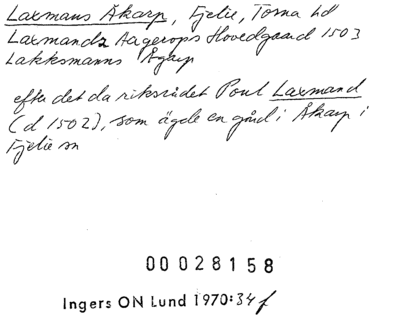 Laxmans Åkarp, Fjelie, Torna hd
Laxmands Aagerops Hovedgaard 1503
Lakksmanns Ågarp
efter det da riksrådet Poul Laxmand
(d 1502), som ägde en gård i Åkarp i
Fjelie sn
00028158
Ingers ON Lund 1970:34 f